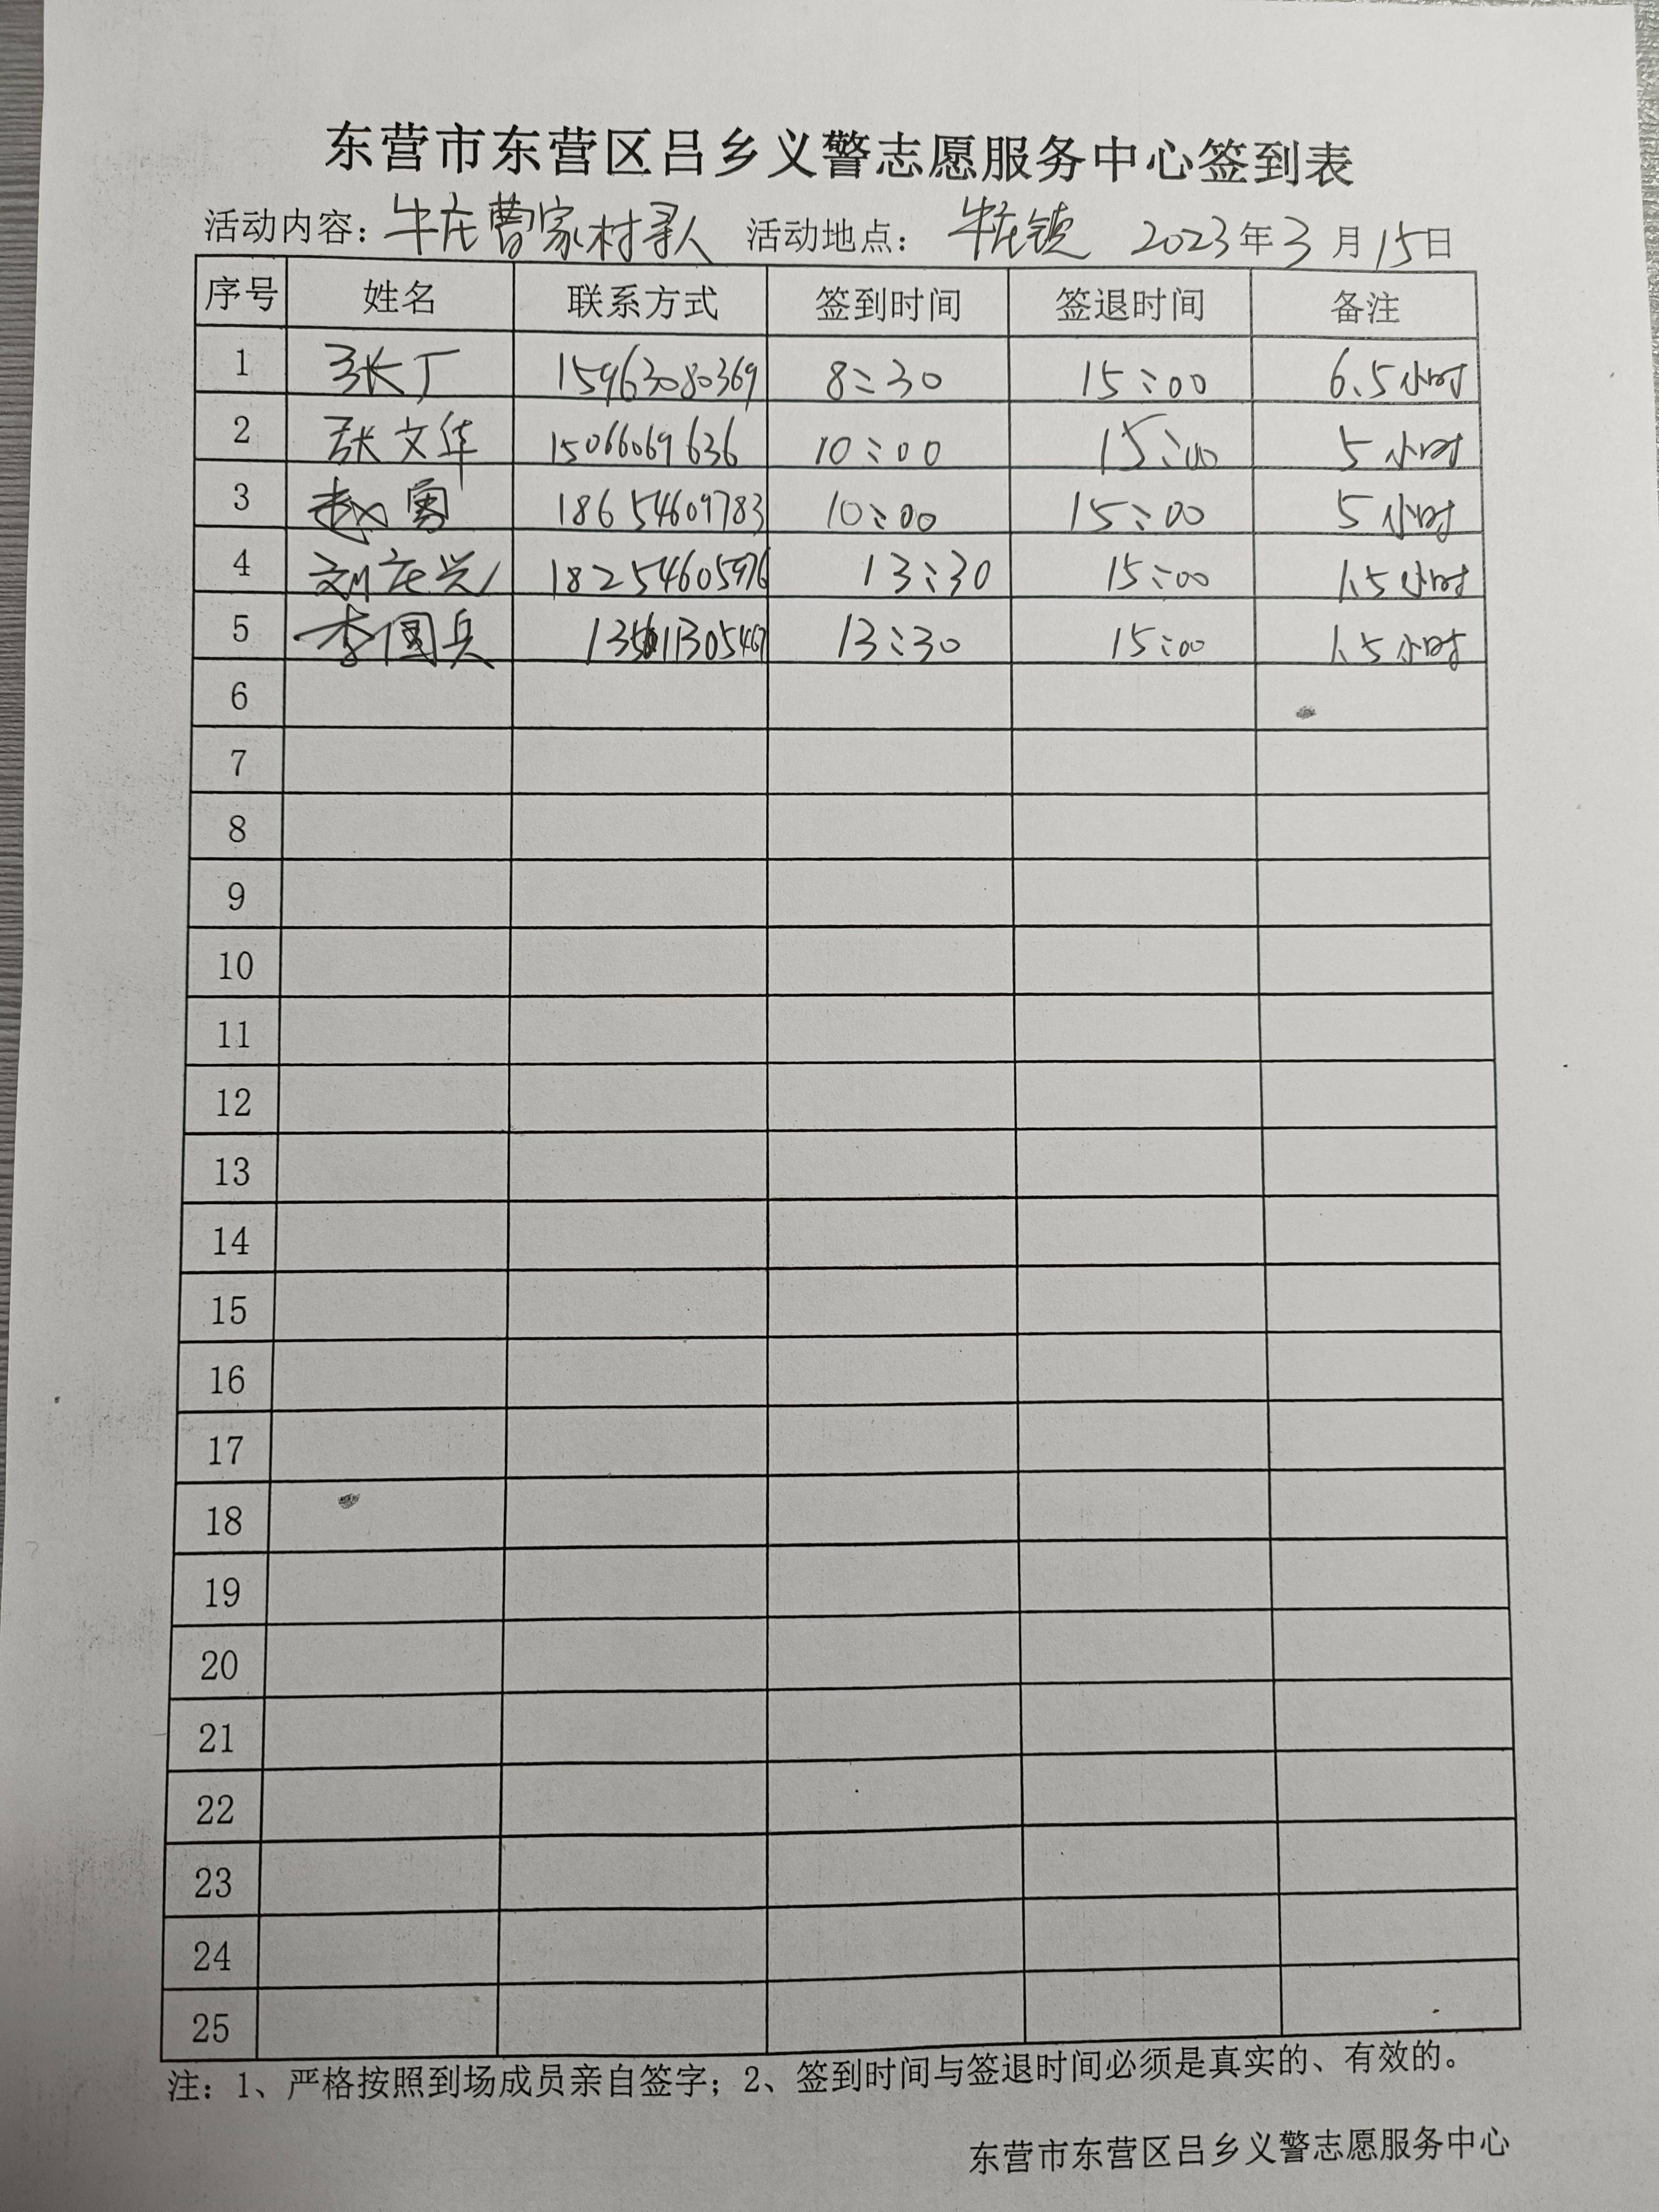 东营市东营区吕乡义警志愿服务中心签到表
活动内容：牛庄曹家村寻人 活动地点：牛庄镇 2023年3月15日
序号 姓名 联系方式 签到时间 签退时间 备注
1 张丁 15963080369 8:30 15:00 6.5小时
2 张文华 15066069636 10:00 15:00 5小时
3 赵勇 18654609783 10:00 15:00 5小时
4 刘庄兴 18254605976 13:30 15:00 1.5小时
5 李国兵 13:30 15:00 1.5小时
6
7
8
9
10
11
12
13
14
15
16
17
18
19
20
21
22
23
24
25
注：1、严格按照到场成员亲自签字；2、签到时间与签退时间必须是真实的、有效的。
东营市东营区吕乡义警志愿服务中心